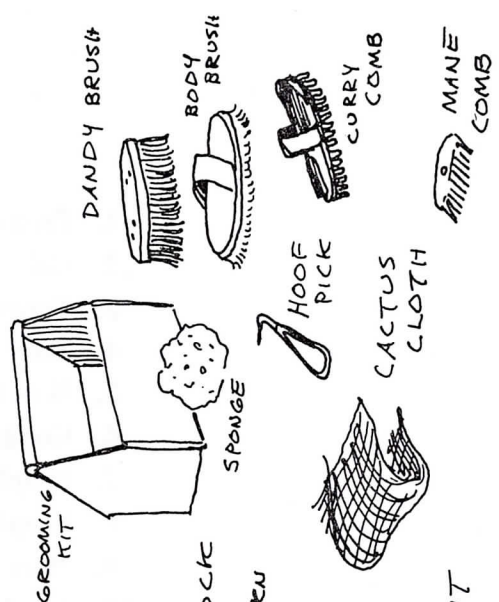 GROOMING
KIT
DANDY BRUSH
BODY
BRUSH
SPONGE
HOOF
PICK
CURRY
COMB
CACTUS
CLOTH
MANE
COMB
OCK